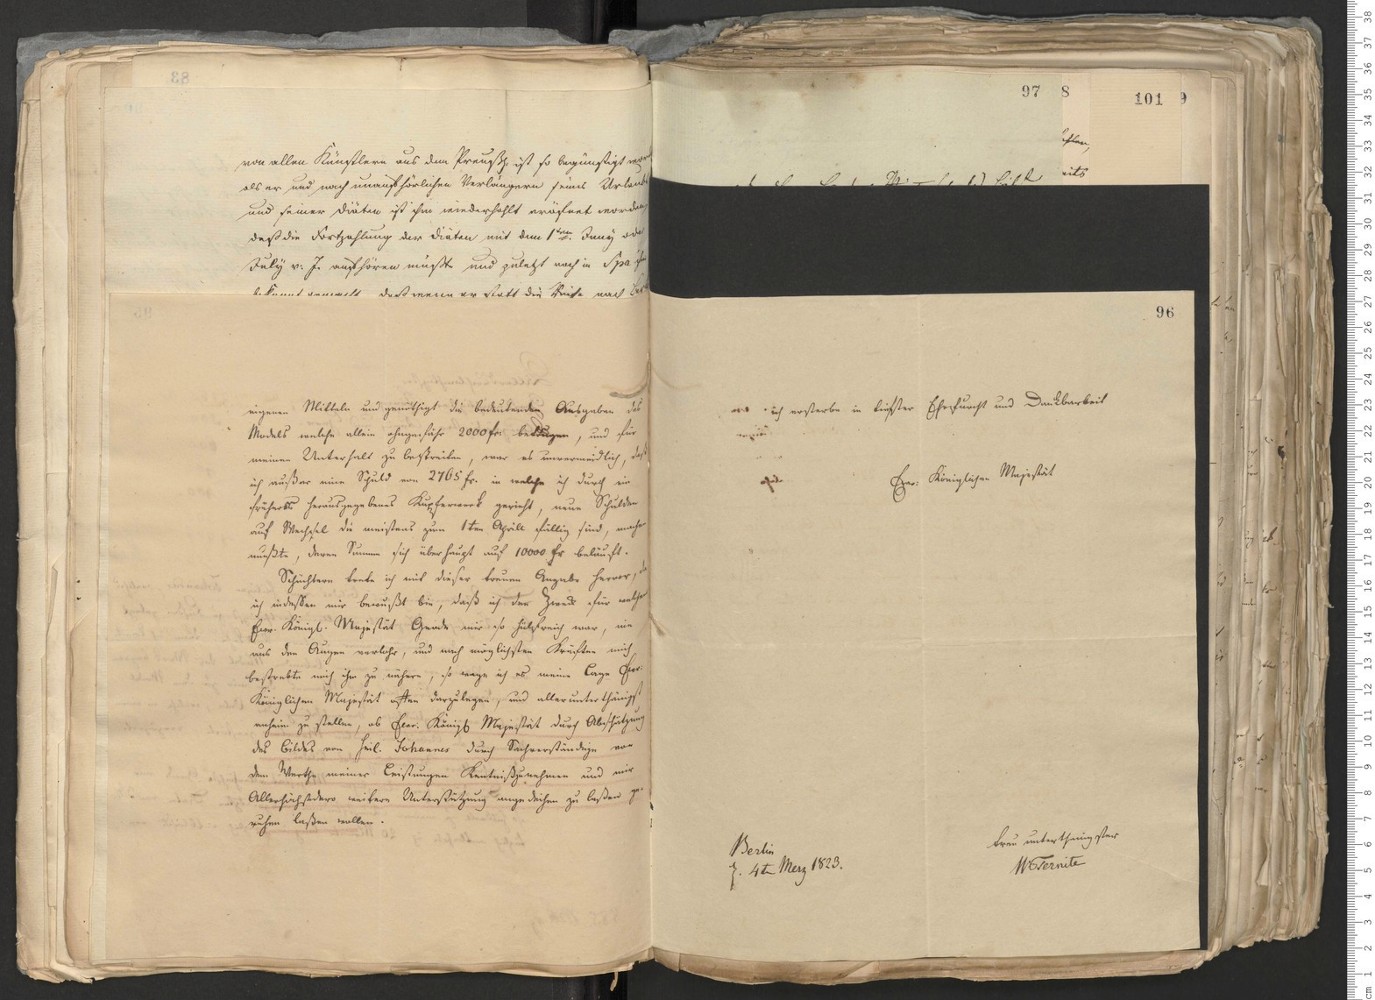 83
von allen Künstlern aus dem Preuß. ist so begünstigt
als er und nach unaufhörlichen Verlängern seines Urlaubs
und seiner Diäten ist ihm wiederhohlt eröfnet worden,
daß die Fortzahlung der Diäten mit dem 1ten Juny oder
July v. J. aufhören müßte und zuletzt noch in Spa ihm
bekannt gemacht, daß wenn er statt die Reise nach
95
eigenen Mitteln und genöthigt die bedeutenden Ausgaben des
Models welche allein ohngefähr 2000 fr betrugen, und für
meinen Unterhalt zu bestreiten, war es unvermeidlich, daß
ich außer eine Schuld von 2765 fr. in welche ich durch ein
früheres herausgegebenes Kupferwerk gerieht, neue Schulden
auf Wechsel die meistens zum 1ten Aprill fällig sind, machen
mußte, deren Summe sich überhaupt auf 10000 fr beläuft.
Schüchtern trete ich mit dieser treuen Angabe hervor, da
ich indessen mir bewußt bin, daß ich den Zweck für welchen
Ewr. Königl. Majestät Gnade mir so hülfreich war, nie
aus den Augen verlohr, und nach möglichsten Kräften mich
bestrebte mich ihm zu nähern, so wage ich es meine Lage Ewr.
Königlichen Majestät offen darzulegen, und allerunterthänigst
anheim zu stellen, ob Ewr. Königl. Majestät durch Abschätzung
des Bildes von heil. Johannes durch Sachverständige von
dem Werthe meiner Leistungen Kentniß zu nehmen und mir
Allerhöchstdero weitere Unterstützung angedeihen zu laßen ge-
ruhen laßen wollen.
97
8
101
9
96
ich ersterbe in tiefster Ehrfurcht und Dankbarkeit
Ewr: Königlichen Majestät
Berlin
d. 4ten Merz 1823.
treu unterthänigster
W Ternite